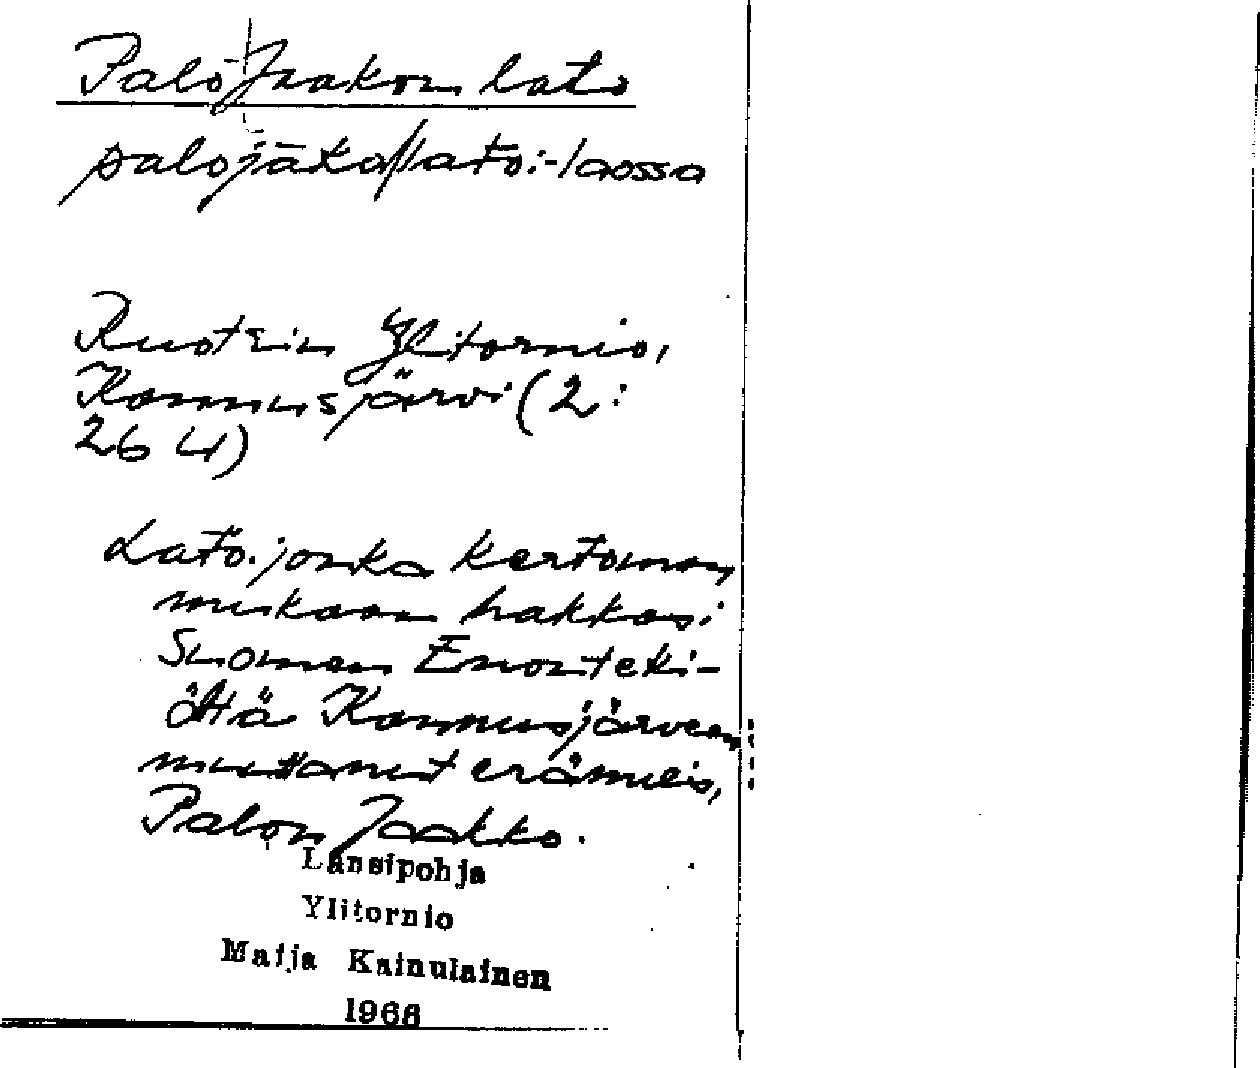 Palo Jaakon lato
Ruotsin Ylitornio,
Kannusjärvi (2:
26 4)
Lato, jonka kertoman
mukaan hakkasi
Suomen Enonteki-
öltä Kannusjärveen
muuttanut erämies,
Palon Jaakko.
Länsipohja
Ylitornio
Maija Kainulainen
1966